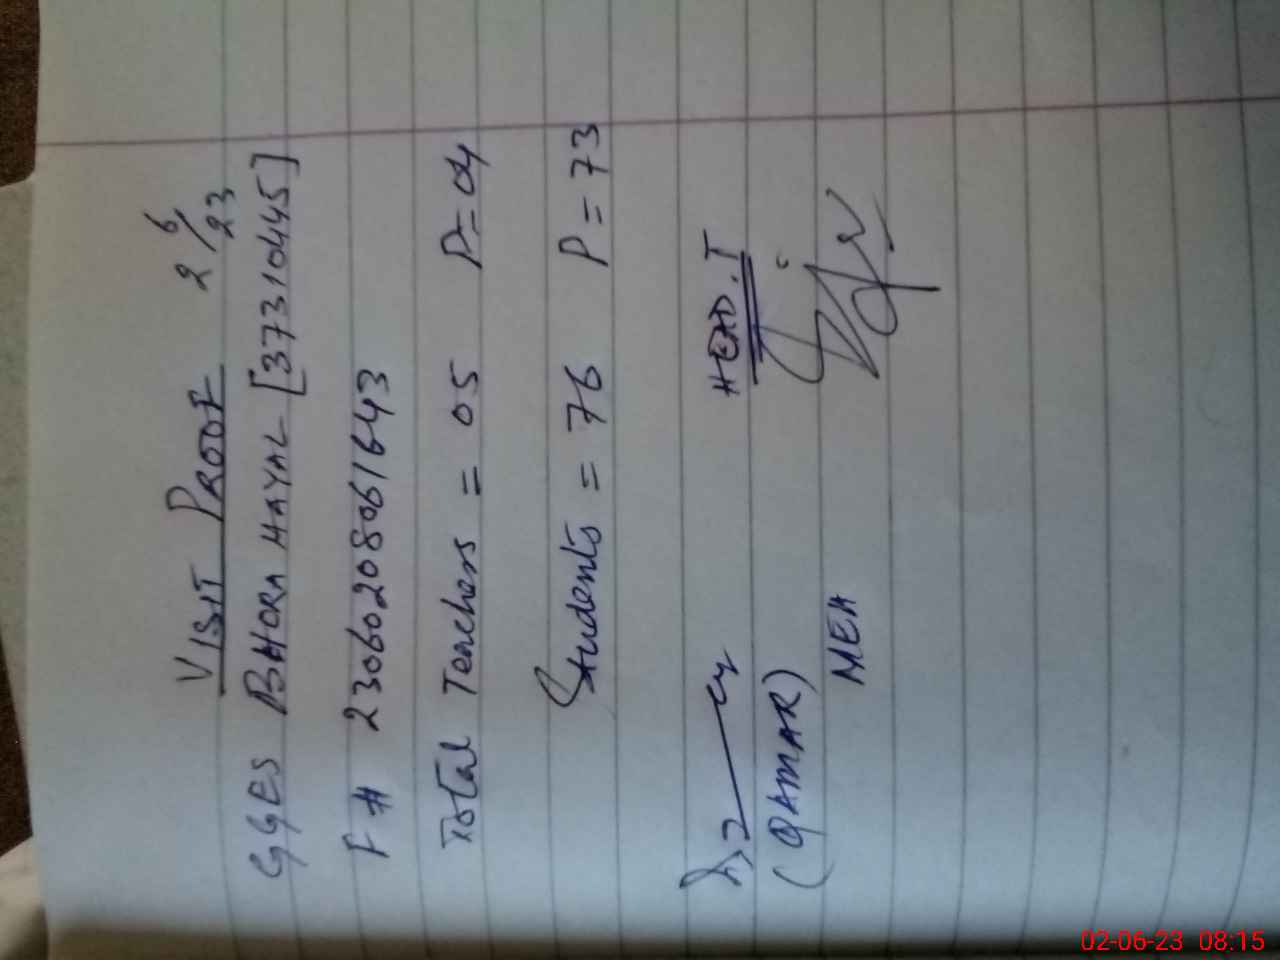 VISIT PROOF 2/6/23
GGES BHORA HAYAL [37310445]
F# 23060208061643
Total Teachers = 05 P=04
Students = 76 P=73
HEAD.T
(QAMAR)
MEA
02-06-23 08:15